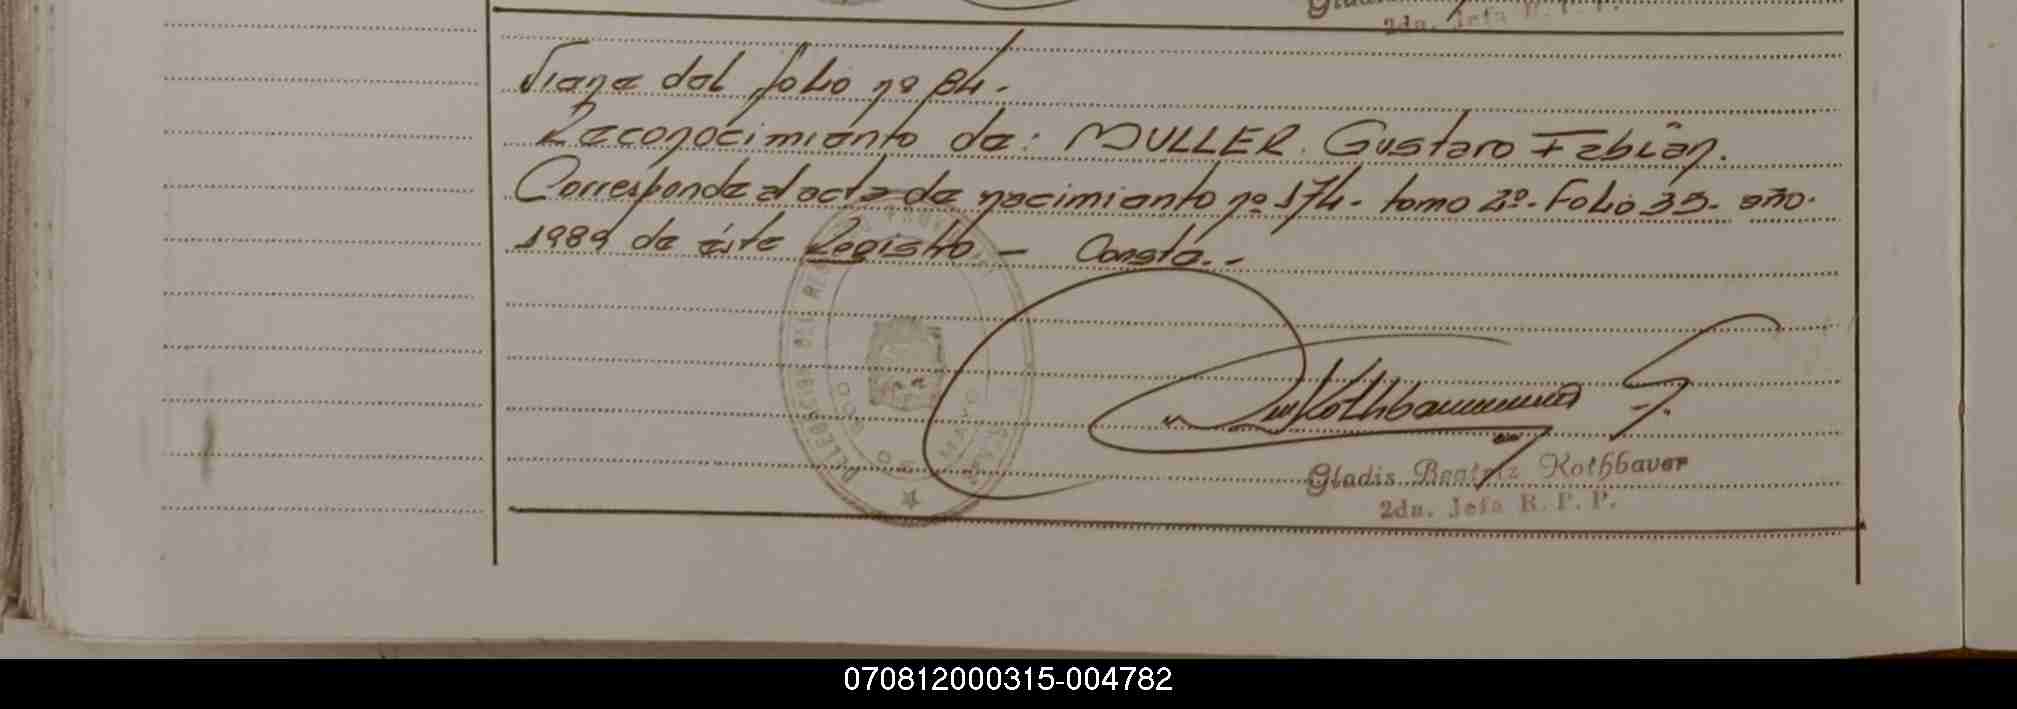 Gladis
2da. Jefa R. P. P.
Viene del folio nº 84.
Reconocimiento de: MULLER. Gustavo Fabián.
Corresponde al acta de nacimiento nº 174. tomo 2º. Folio 35. año.
1989 de éste Registro — Consta. -
Gladis Beatriz Rothbaver
2da. Jefa R. P. P.
070812000315-004782